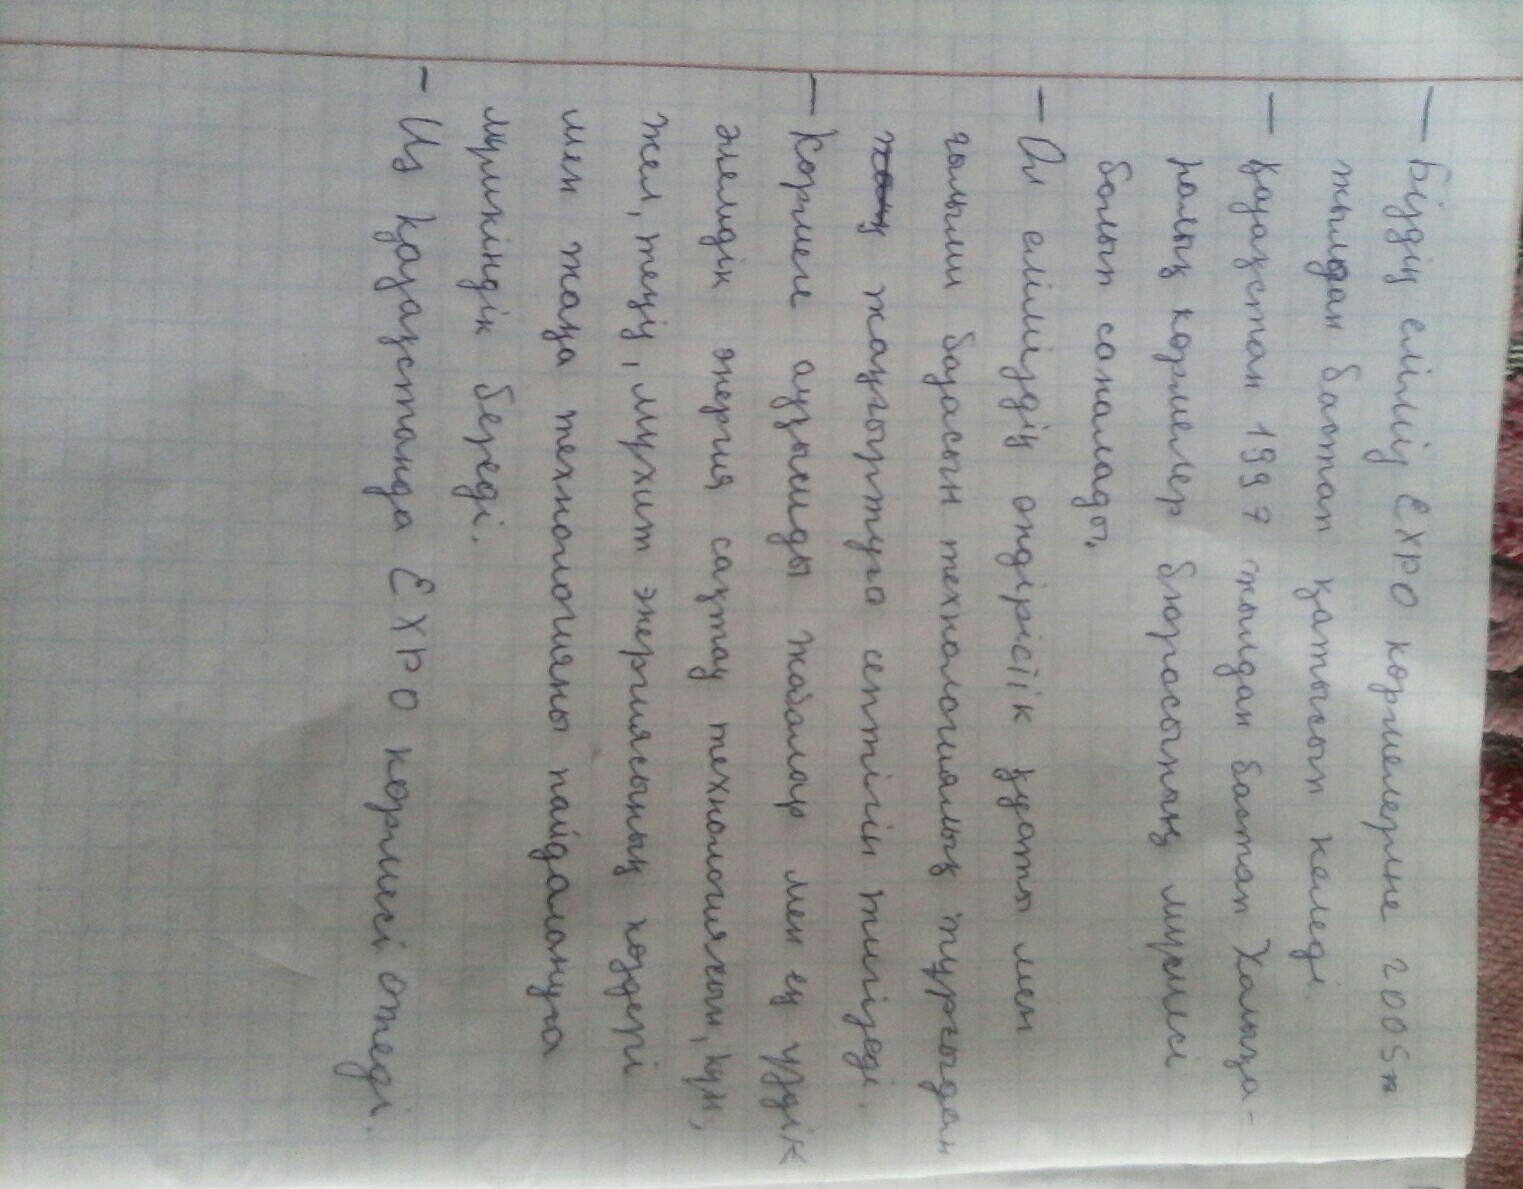 — Біздің еліміз EXPO көрмелеріне 2005ж
жылдан бастап қатысып келеді.
— Қазақстан 1997 жылдан бастап Халықа-
ралық көрмелер бюросының мүшесі
болып саналады,
— Ол еліміздің өндірістік қуаты мен
ғылыми базасын технологиялық тұрғыдан
жаңғыртуға септігін тигізеді.
— Көрмеге ауқымды жобалар мен ең үздік
әлемдік энергия сақтау технологиясын, күн,
жел, теңіз, мұхит энергиясының көздері
мен жаңа технологияны пайдалануға
мүмкіндік береді.
— Иә Қазақстанда EXPO көрмесі өтеді.